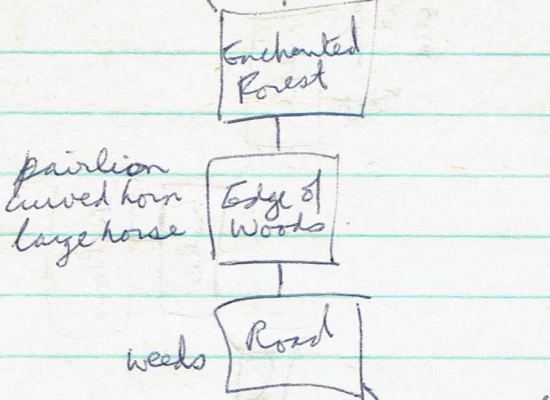 Enchanted
Forest
pavilion
curved horn
large horse
Edge of
Woods
Road
weeds